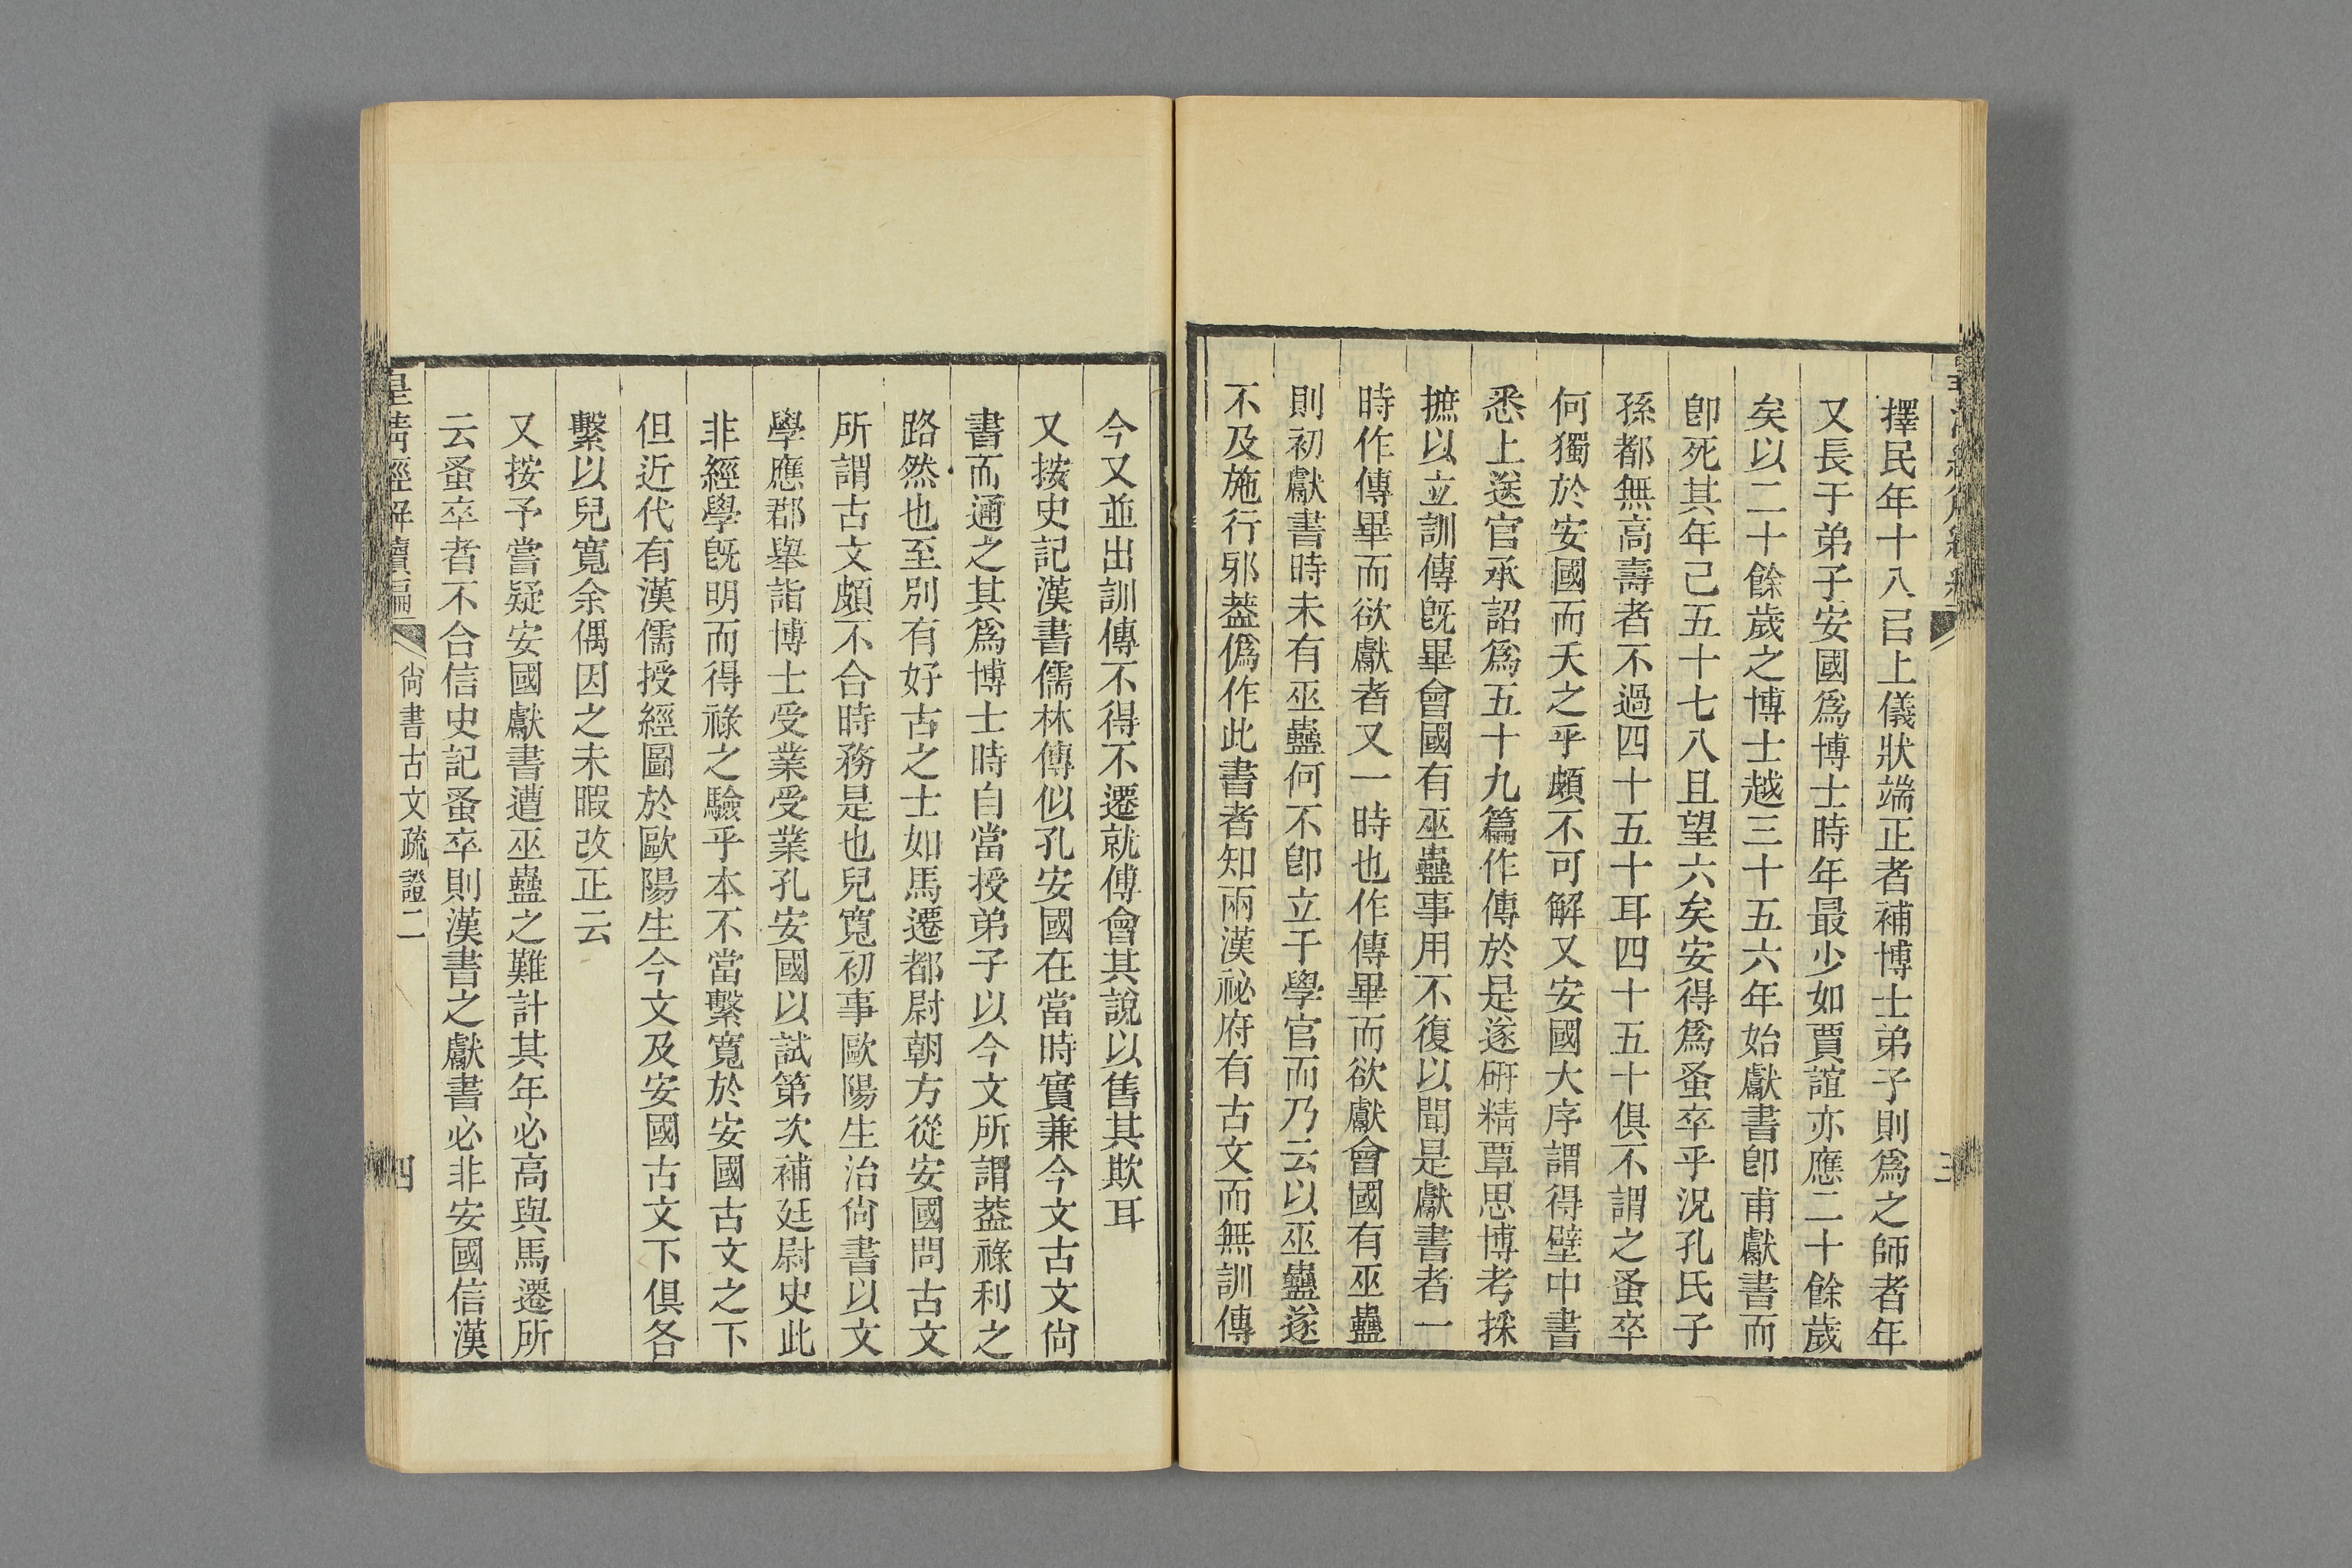 擇民年十八㠯上儀狀端正者補博士弟子則爲之師者年
又長于弟子安國爲博士時年最少如賈誼亦應二十餘歲
矣以二十餘歲之博士越三十五六年始獻書卽甫獻書而
卽死其年己五十七八且望六矣安得爲蚤卒乎況孔氏子
孫都無高壽者不過四十五十耳四十五十俱不謂之蚤卒
何獨於安國而夭之乎頗不可解又安國大序謂得壁中書
悉上送官承詔爲五十九篇作傳於是遂硏精覃思博考採
摭以立訓傳旣畢會國有巫蠱事用不復以聞是獻書者一
時作傳畢而欲獻者又一時也作傳畢而欲獻會國有巫蠱
則初獻書時未有巫蠱何不卽立于學官而乃云以巫蠱遂
不及施行邪葢僞作此書者知兩漢祕府有古文而無訓傳
今又並出訓傳不得不遷就傅會其說以售其欺耳
又按史記漢書儒林傳似孔安國在當時實兼今文古文尙
書而通之其爲博士時自當授弟子以今文所謂葢祿利之
路然也至別有好古之士如馬遷都尉朝方從安國問古文
所謂古文頗不合時務是也兒寬初事歐陽生治尙書以文
學應郡舉詣博士受業受業孔安國以試第次補廷尉史此
非經學旣明而得祿之驗乎本不當繫寬於安國古文之下
但近代有漢儒授經圖於歐陽生今文及安國古文下俱各
繫以兒寬余偶因之未暇改正云
又按予嘗疑安國獻書遭巫蠱之難計其年必高與馬遷所
云蚤卒者不合信史記蚤卒則漢書之獻書必非安國信漢
皇清經解續編
尙書古文疏證二
四